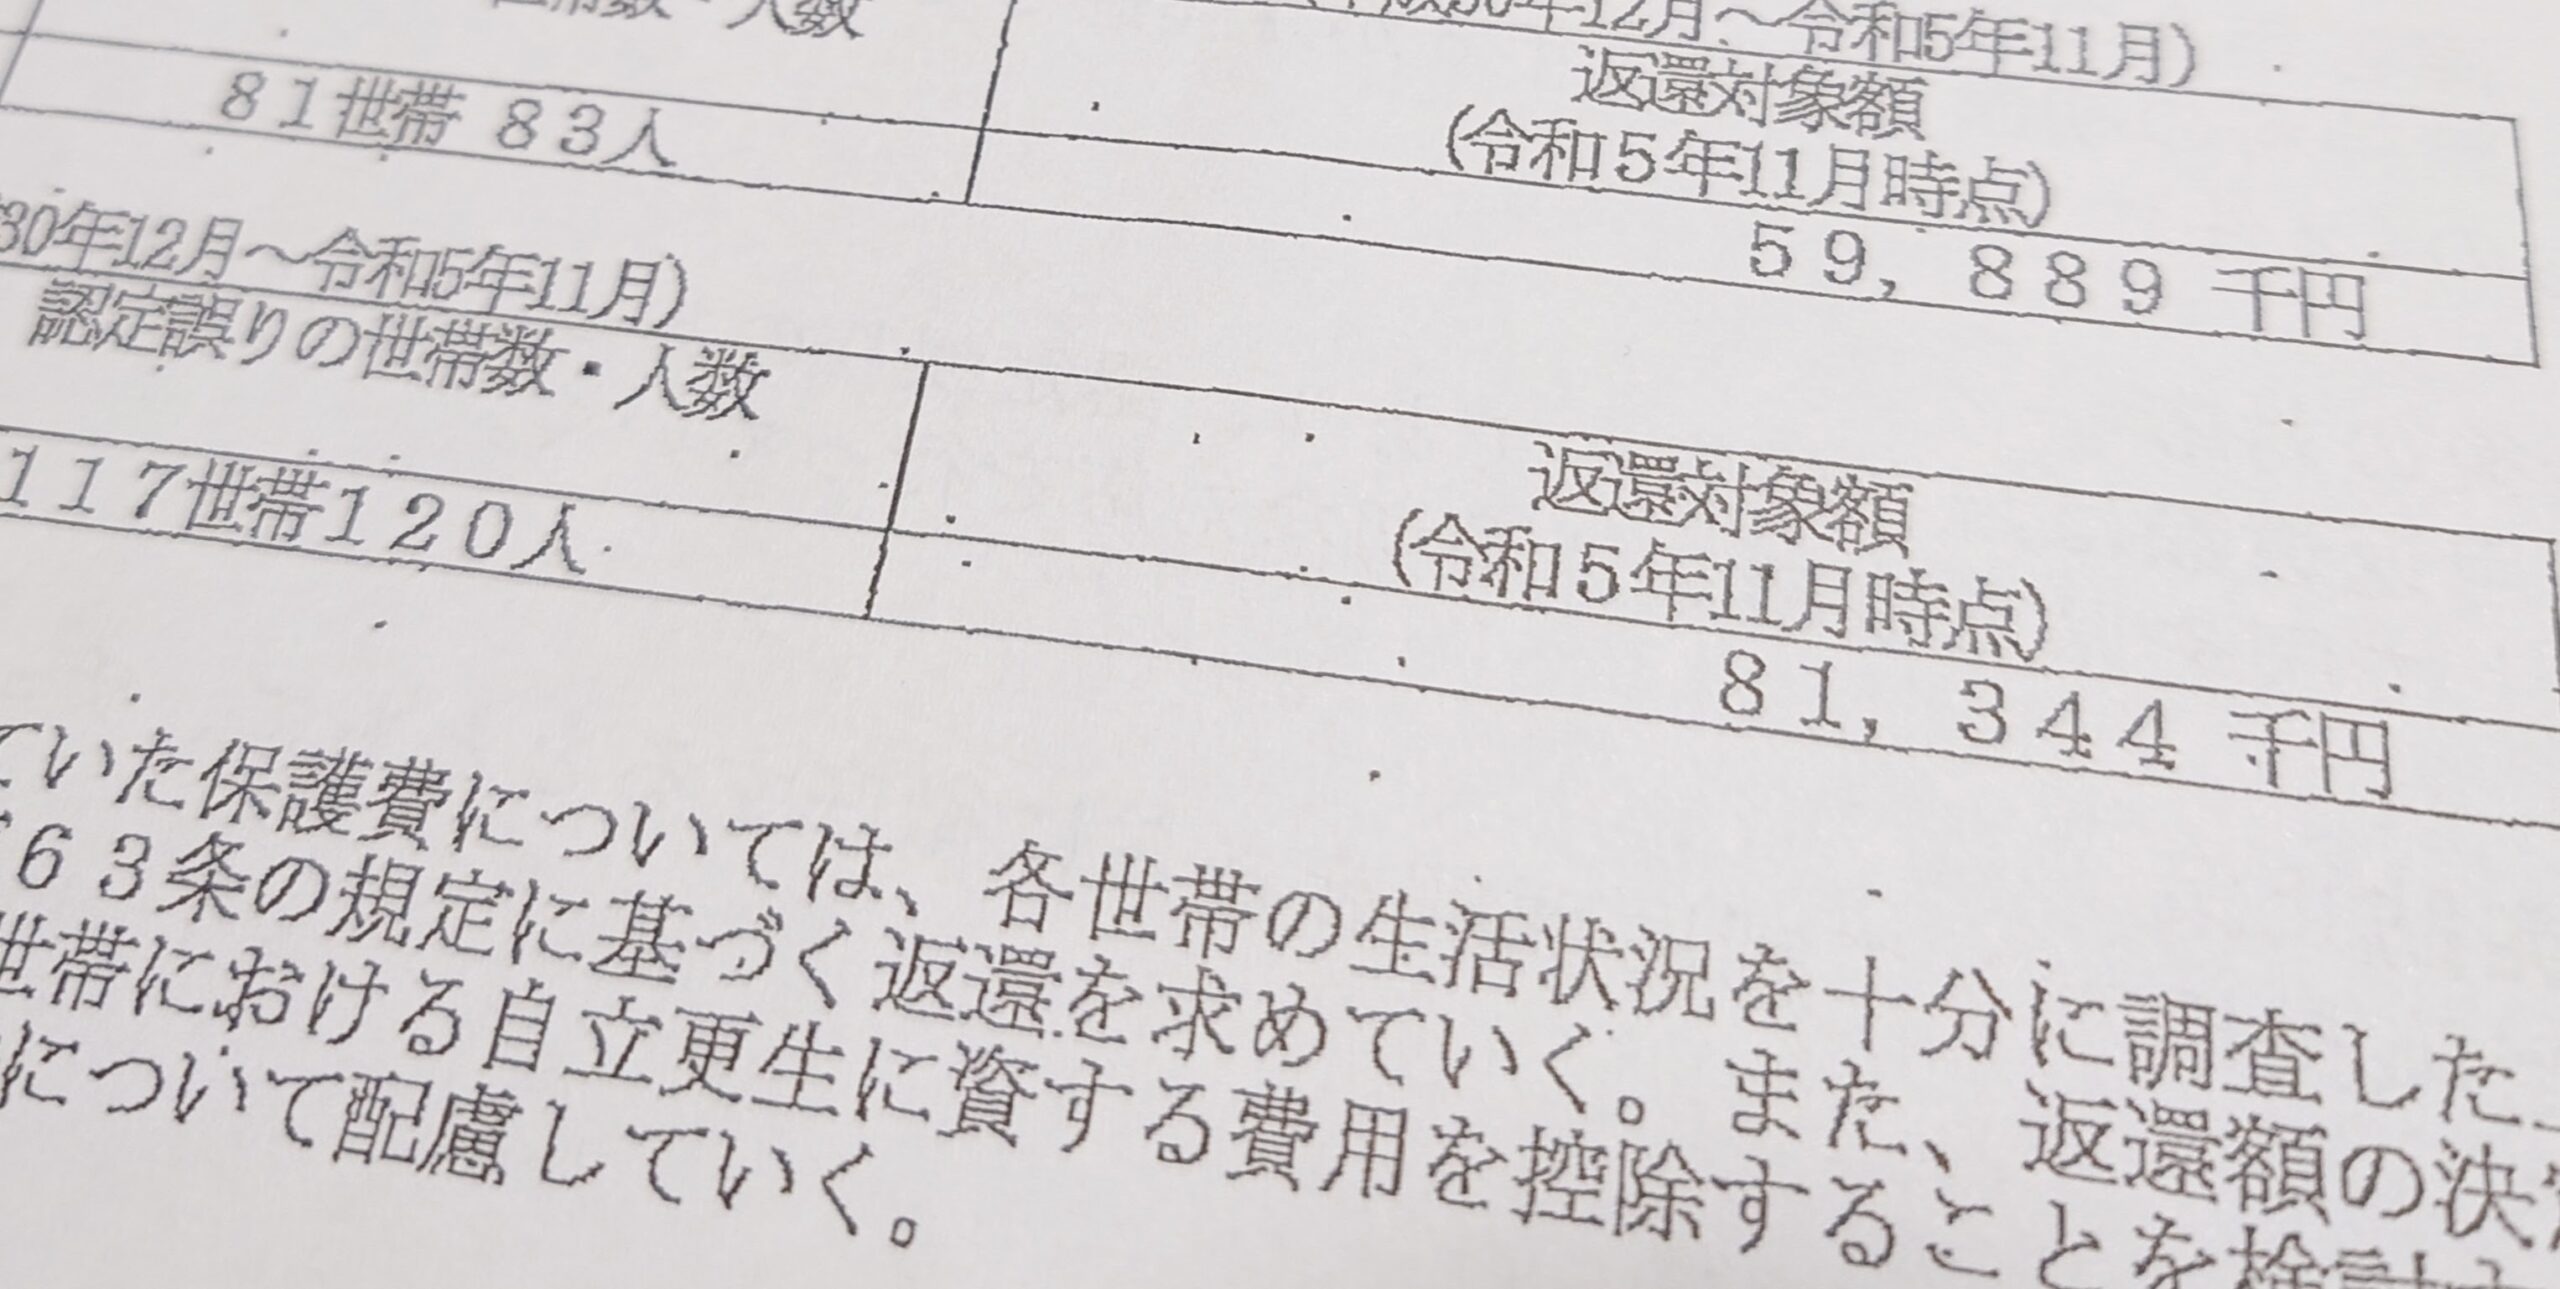 世帯数・人数
30年12月～令和5年11月)
81世帯 83人
返還対象額
(令和5年11月時点)
59,889 千円
30年12月～令和5年11月)
認定誤りの世帯数・人数
返還対象額
(令和5年11月時点)
117世帯120人
81,344 千円
ていた保護費については、各世帯の生活状況を十分に調査した
63条の規定に基づく返還を求めていく。また、返還額の決
世帯における自立更生に資する費用を控除することを検討
について配慮していく。